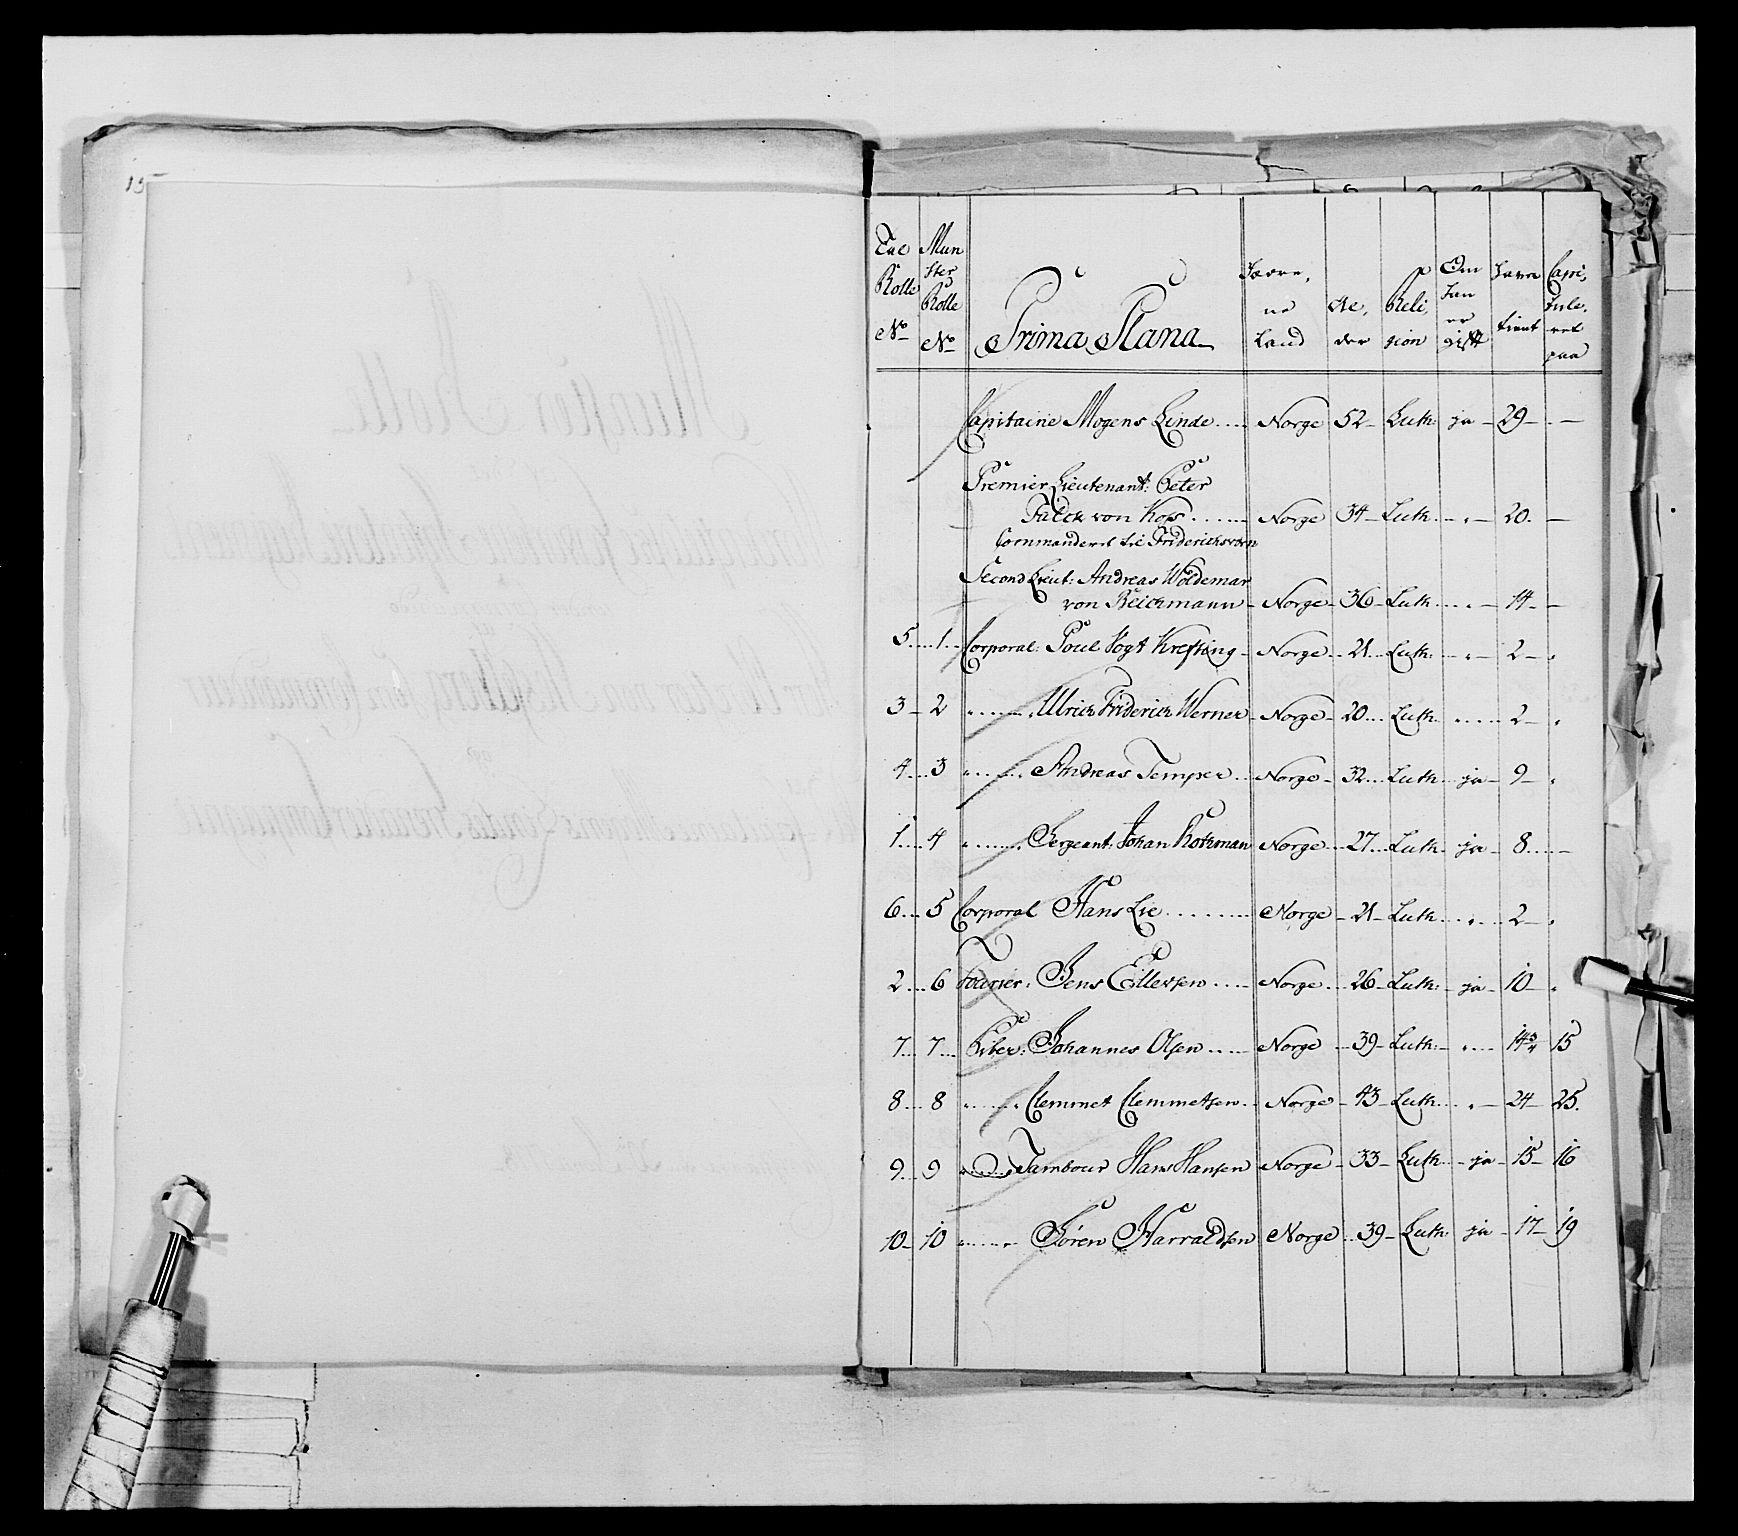 15
Tal Rolle No
Mun ster Rolle No
Prima Plana
Fødene Land
Al der
Reli gion
Om han er gift
Havn tient
Capi tule ret paa
Capitaine Mogens Linde .... Norge 52 Luth: ja 29 . —
Premier Lieutenant: Peter
Falck von Kops ...... Norge 34 Luth - „ - 20. —
Commanderet til Friderichsværn
Second Lieut: Andreas Woldemar
von Beichmann - Norge 36 Luth ... „ - 14 —
5 .... 1 .. Corporal: Poul Vogt Krefting - Norge .. 21 ... Luth: - „ - 2 - „
3 - 2 „ ...... Ulrich Friderich Werner - Norge - 20 ... Luth ..... - 2 - „
4 .... 3 „ ...... Andreas Temper .. Norge - 32 ... Luth. ja - 9 - „
1 .... 4 „ ...... Sergeant: Johan Rothman Norge ... 27 ... Luth. ja - 8 .... —
6 ... 5 Corporal Hans Lie ........ Norge - 21 - Luth ... „ ... 2 - „
2 ... 6 Fourier: Jens Ellersen .... Norge ... 26 - Luth: - ja - 10 - „
7 ... 7 ... Piber: Johannes Olsen .... Norge ... 39 - Luth: - „ ... 14 3/4 15
8 ... 8 „ ...... „ Clemmet Clemmetsen .. Norge - 43 - Luth ... „ - 24 - 25.
9 ... 9 Tambour Hans Hansen Norge - 33 - Luth .. - ja - 15 - 16
10 - 10 „ ...... Søren Harraldsen Norge ... 39 - Luth ja - 17 - 19